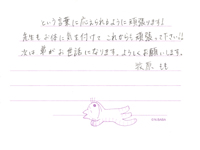 という言葉に応えられるように頑張ります!
先生もお体に気を付けて これからも頑張って下さい!!
次は弟がお世話になります。よろしくお願いします。